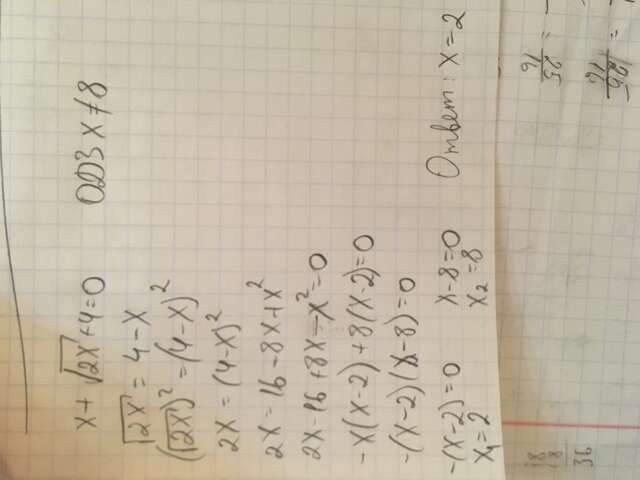 x + √2x + 4 = 0 ОДЗ x ≠ 8
√2x = 4 - x
(√2x)² = (4-x)²
2x = (4-x)²
2x = 16 - 8x + x²
2x - 16 + 8x - x² = 0
-x(x-2) + 8(x-2) = 0
-(x-2)(x-8) = 0
-(x-2) = 0 x-8=0 Ответ: x = 2
x₁ = 2 x₂ = 8
18
8
36
25
16